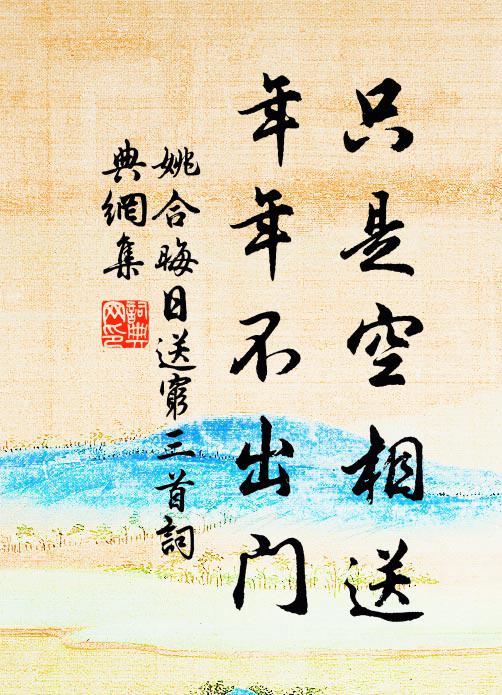 只是空相送
年年不出門
姚合晦日送窮三首詞
典網集
詞典
网印